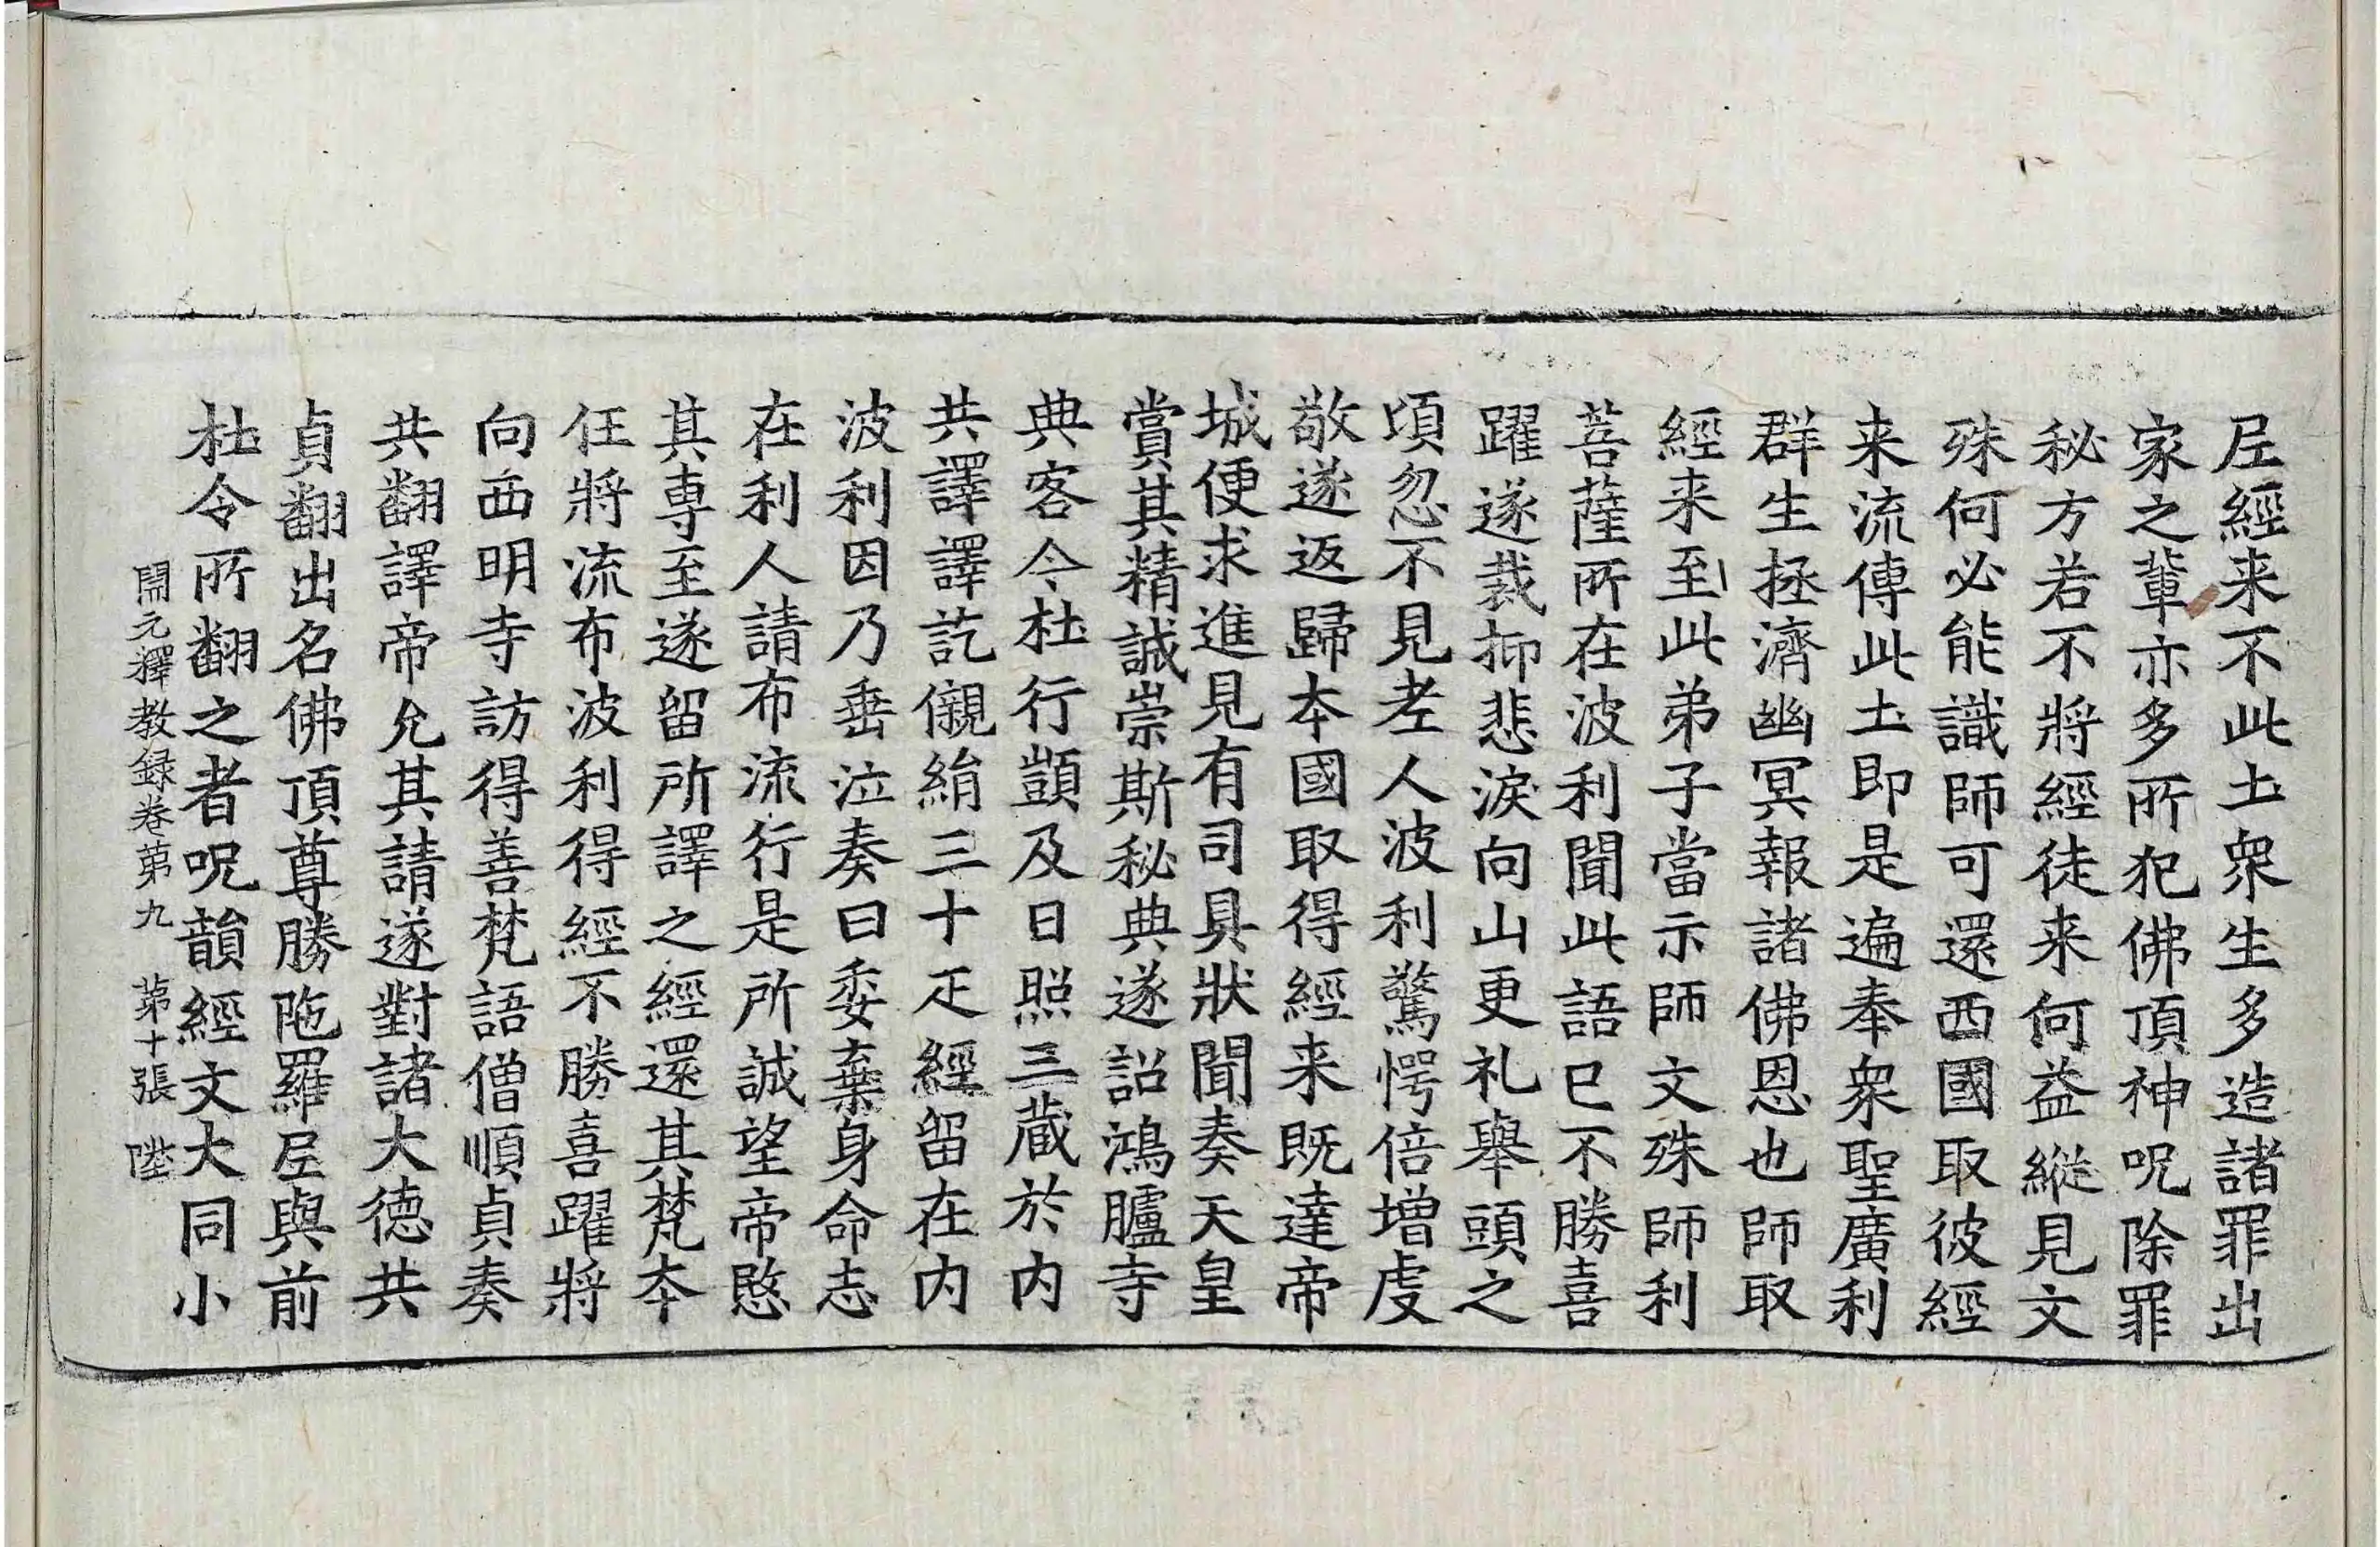 尼經来不此土衆生多造諸罪出
家之輩亦多所犯佛頂神呪除罪
秘方若不將經徒来何益縱見文
殊何必能識師可還西國取彼經
来流傳此土即是遍奉衆聖廣利
群生拯濟幽冥報諸佛恩也師取
經来至此弟子當示師文殊師利
菩薩所在波利聞此語已不勝喜
躍遂裁抑悲淚向山更礼舉頭之
頃忽不見老人波利驚愕倍增虔
敬遂返歸本國取得經来既達帝
城便求進見有司具狀聞奏天皇
賞其精誠崇斯秘典遂詔鴻臚寺
典客令杜行顗及日照三藏於内
共譯譯訖儭絹三十疋經留在内
波利因乃垂泣奏曰委棄身命志
在利人請布流行是所誠望帝愍
其専至遂留所譯之經還其梵本
任將流布波利得經不勝喜躍將
向西明寺訪得善梵語僧順貞奏
共翻譯帝允其請遂對諸大德共
貞翻出名佛頂尊勝陁羅尼與前
杜令所翻之者呪韻經文大同小
開元釋教録卷第九 第十張 陞